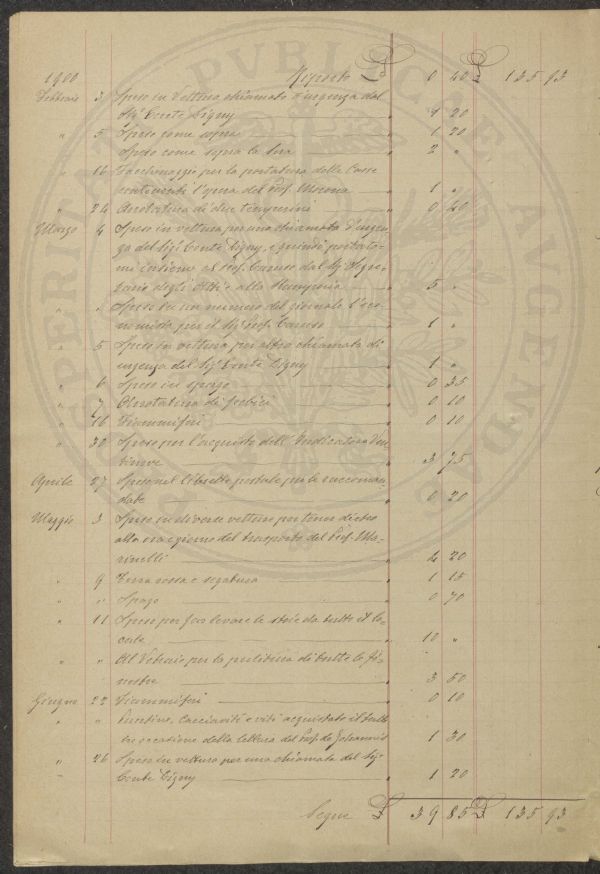 1900 Riporto £ 0 40 £ 135 93
Febbraio 3 Spese in vettura chiamato d'urgenza dal
Sigr Conte Cigny 1 20
" 5 Spese come sopra 1 20
Spese come sopra la sera 2 "
" 16 Facchinaggio per la portatura delle Casse
contenenti l'opera del Prof. Morena 1 "
" 24 Arrotatura di due temperini 0 40
Marzo 4 Spese in vettura per una chiamata d'urgen-
za del Sigr Conte Cigny, e quindi portato-
mi insieme al Prof. Caruso dal Sigr Segre-
tario degli Offici alla 5 "
" " Spese in un numero del giornale l'eco-
nomista per il Sigr Prof. Caruso 1 "
" 5 Spese in vettura per altra chiamata di
urgenza del Sigr Conte Cigny 1 "
" 6 Spese in spago 0 35
" 7 Arrotatura di forbici 0 10
" 16 Fiammiferi 0 10
" 30 Spese per l'acquisto dell'Indicatore
3 75
Aprile 27 Spese nel libretto postale per le raccoman-
date 0 20
Maggio 3 Spese in diverse vetture per tener dietro
alla ora e giorno del trasporto del Prof. Ma-
rinelli 4 20
" 9 Terra rossa e segatura 1 15
" " Spago 0 70
" 11 Spese per far levare le stoie da tutto il lo-
cale 10 "
" " Al Vetraio per la pulitura di tutte le fi-
nestre 3 50
Giugno 22 Fiammiferi 0 10
" " Puntine, Cacciaviti e viti acquistato il tutto
in occasione della lettura del Prof. de Johannis 1 30
" 26 Spese in vettura per una chiamata del Sigr
Conte Cigny 1 20
Segue £ 39 85 £ 135 93
PERITATI PVBLICAE AVGENDAE